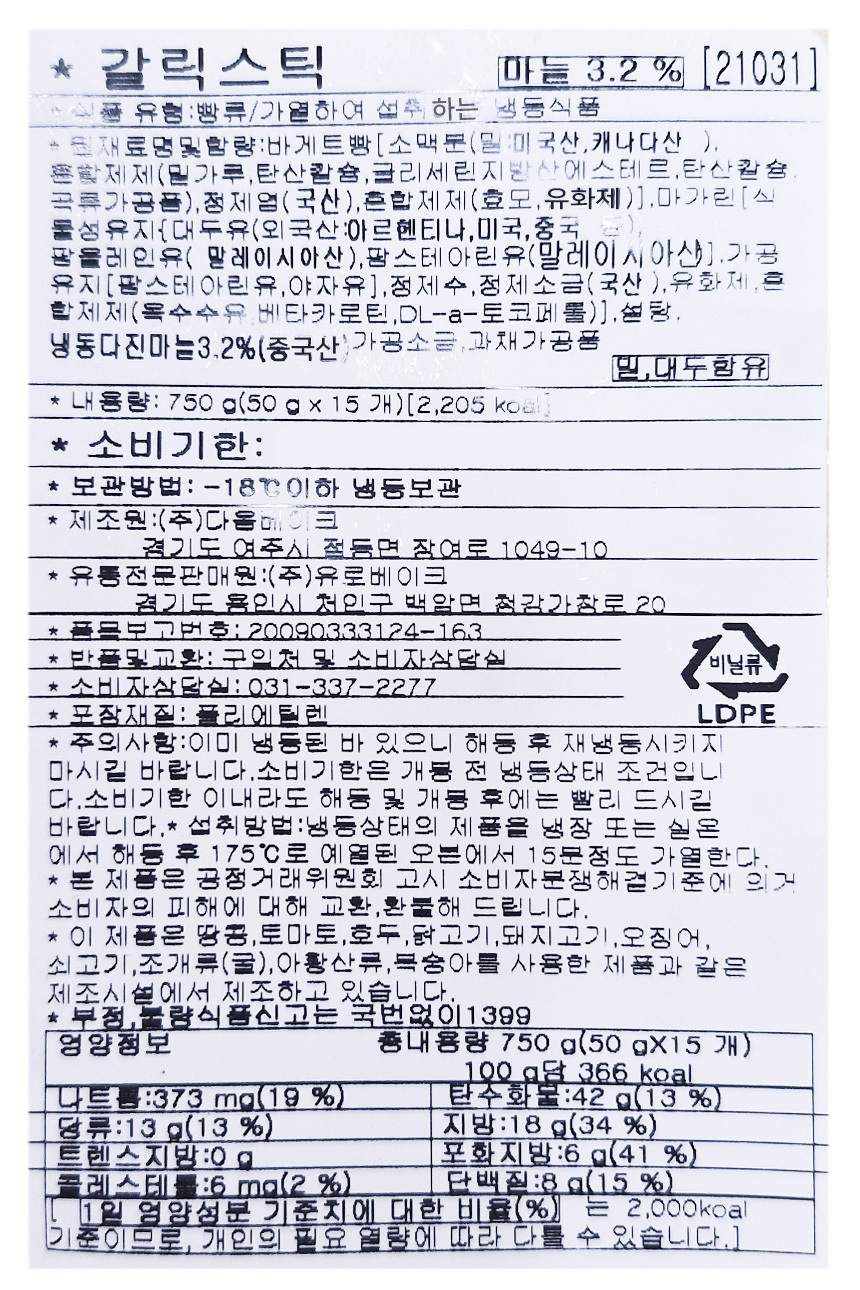 * 갈릭스틱 마늘 3.2 % [21031]
* 식품 유형:빵류/가열하여 섭취하는 냉동식품
* 원재료명및함량:바게트빵[소맥분(밀:미국산,캐나다산 ),
혼합제제(밀가루,탄산칼슘,글리세린지방산에스테르,탄산칼슘,
곡류가공품),정제염(국산),혼합제제(효모,유화제)],마가린[식
물성유지{대두유(외국산:아르헨티나,미국,중국 등),
팜올레인유( 말레이시아산),팜스테아린유(말레이시아산)],가공
유지[팜스테아린유,야자유],정제수,정제소금(국산 ),유화제,혼
합제제(옥수수유,베타카로틴,DL-a-토코페롤)],설탕,
냉동다진마늘3.2%(중국산)가공소금,과채가공품
밀,대두함유
* 내용량: 750 g(50 g x 15 개)[2,205 kcal]
* 소비기한:
* 보관방법: -18℃이하 냉동보관
* 제조원:(주)다올베이크
경기도 여주시 점동면 장여로 1049-10
* 유통전문판매원:(주)유로베이크
경기도 용인시 처인구 백암면 청강가창로 20
* 품목보고번호: 20090333124-163
* 반품및교환: 구입처 및 소비자상담실
* 소비자상담실: 031-337-2277
* 포장재질: 폴리에틸렌
비닐류
LDPE
* 주의사항:이미 냉동된 바 있으니 해동 후 재냉동시키지
마시길 바랍니다.소비기한은 개봉 전 냉동상태 조건입니
다.소비기한 이내라도 해동 및 개봉 후에는 빨리 드시길
바랍니다.* 섭취방법:냉동상태의 제품을 냉장 또는 실온
에서 해동 후 175℃로 예열된 오븐에서 15분정도 가열한다.
* 본 제품은 공정거래위원회 고시 소비자분쟁해결기준에 의거
소비자의 피해에 대해 교환,환불해 드립니다.
* 이 제품은 땅콩,토마토,호두,닭고기,돼지고기,오징어,
쇠고기,조개류(굴),아황산류,복숭아를 사용한 제품과 같은
제조시설에서 제조하고 있습니다.
* 부정,불량식품신고는 국번없이1399
영양정보 총내용량 750 g(50 gX15 개)
100 g당 366 kcal
나트륨:373 mg(19 %) 탄수화물:42 g(13 %)
당류:13 g(13 %) 지방:18 g(34 %)
트랜스지방:0 g 포화지방:6 g(41 %)
콜레스테롤:6 mg(2 %) 단백질:8 g(15 %)
[ 1일 영양성분 기준치에 대한 비율(%) 는 2,000kcal
기준이므로, 개인의 필요 열량에 따라 다를 수 있습니다.]